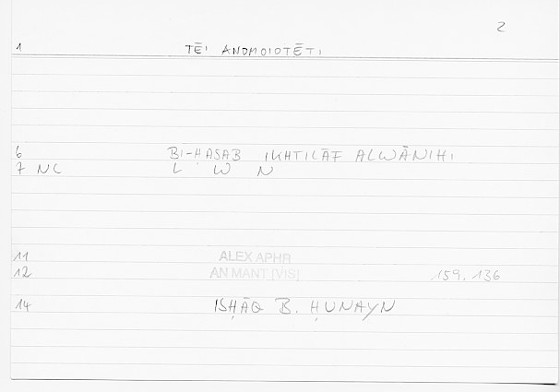 2
1 TĒI ANOMOIOTĒTI
6 BI-ḤASAB IKHTILĀF ALWĀNIHI
7 NC L W N
11 ALEX APHR
12 AN MANT [VIS] 159.136
14 ISḤĀQ B. ḤUNAYN